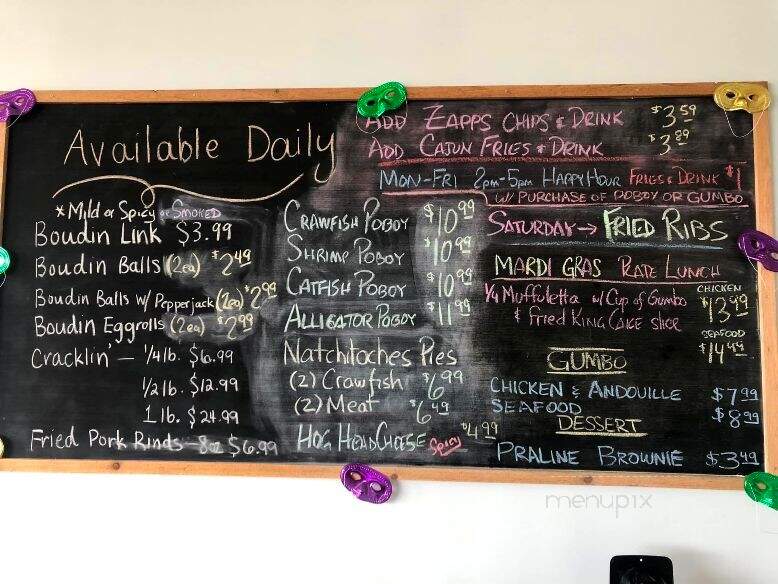 Available Daily
*Mild or Spicy or SMOKED
Boudin Link $3.99
Boudin Balls (2ea) $2.49
Boudin Balls w/ Pepperjack (2ea) $2.99
Boudin Eggrolls (2ea) $2.99
Cracklin' — 1/4 lb. $6.99
1/2 lb. $12.99
1 lb. $24.99
Fried Pork Rinds - 8oz $6.99
CRAWFISH POBOY $10.99
SHRIMP POBOY $10.99
CATFISH POBOY $10.99
ALLIGATOR POBOY $11.99
Natchitoches Pies
(2) Crawfish $6.99
(2) Meat $6.49
HOG HEAD CHEESE Spicy $4.99
ADD ZAPPS CHIPS & DRINK $3.59
ADD CAJUN FRIES & DRINK $3.89
MON-FRI 2pm-5pm HAPPY HOUR FRIES & DRINK $1
W/ PURCHASE OF POBOY OR GUMBO
SATURDAY → FRIED RIBS
MARDI GRAS PLATE LUNCH
1/4 Muffuletta w/ Cup of Gumbo
& Fried KING CAKE
CHICKEN
$13.99
SEAFOOD
$14.49
GUMBO
CHICKEN & ANDOUILLE $7.99
SEAFOOD $8.99
DESSERT
PRALINE BROWNIE $3.49
menupix